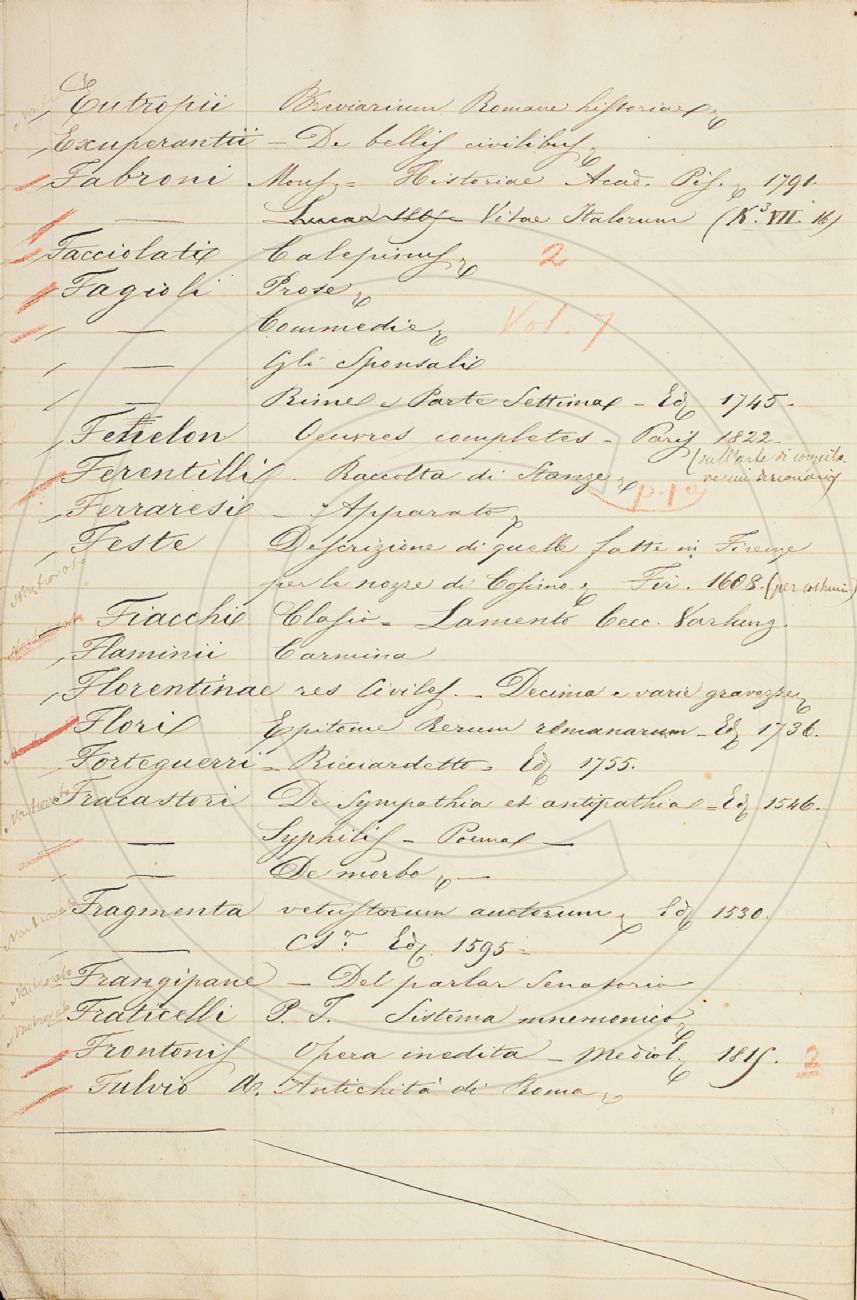 Eutropii Breviarium Romane historiae
Exuperantii - De bellis civilibus
Fabroni Mons = Historiae Acad. Pis. 1791.
— Vitae Italorum (K.3 VII. 16)
Facciolati Calepinus 2
Fagioli Prose
— Commedie Vol. 7
— Gli Sponsali
— Rime e Parte Settima - Ed 1745.
Fenelon Oeuvres completes - Paris 1822
Ferentilli Raccolta di Stanze p. 1a
(sull'arte di
Ferraresi - Apparato
Feste Descrizione di quelle fatte in Firenze
per le nozze di Cosimo Fir. 1608.
Fiacchi Clasio - Lamento Cecc. Varlung.
Flaminii Carmina
Florentinae res Civiles. - Decima e varie gravezze
Flori Epitome Rerum romanarum - Ed 1736.
Forteguerri - Ricciardetto - Ed 1755.
Fracastori De Sympathia et antipathia = Ed 1546.
— Syphilis - Poema —
— De morbo —
Fragmenta vetustorum auctorum, Ed 1530.
— Ed. 1595 -
Frangipane - Del parlar Senatorio
Fraticelli P. J. Sistema mnemonico
Frontonis Opera inedita - Mediol. 1815. 2
Fulvio A. Antichità di Roma